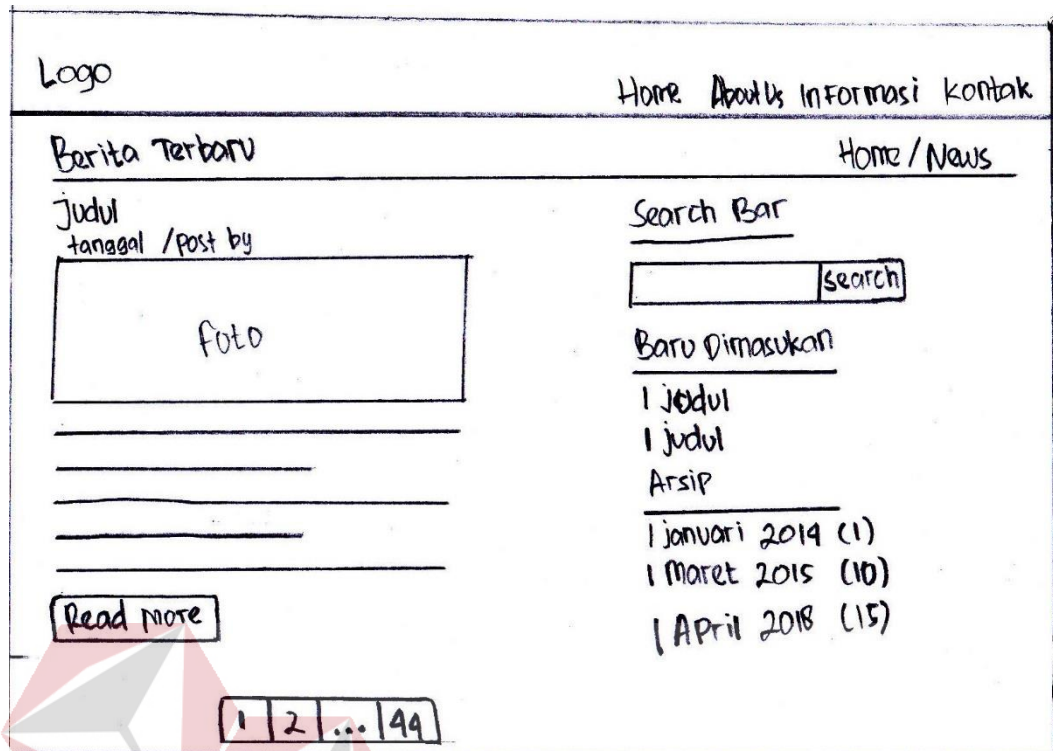 Logo
Home About Us Informasi Kontak
Berita Terbaru
Home / News
Judul
tanggal / post by
foto
Read more
1 2 ... 44
Search Bar
search
Baru Dimasukan
| judul
| judul
Arsip
| januari 2014 (1)
| Maret 2015 (10)
| April 2018 (15)